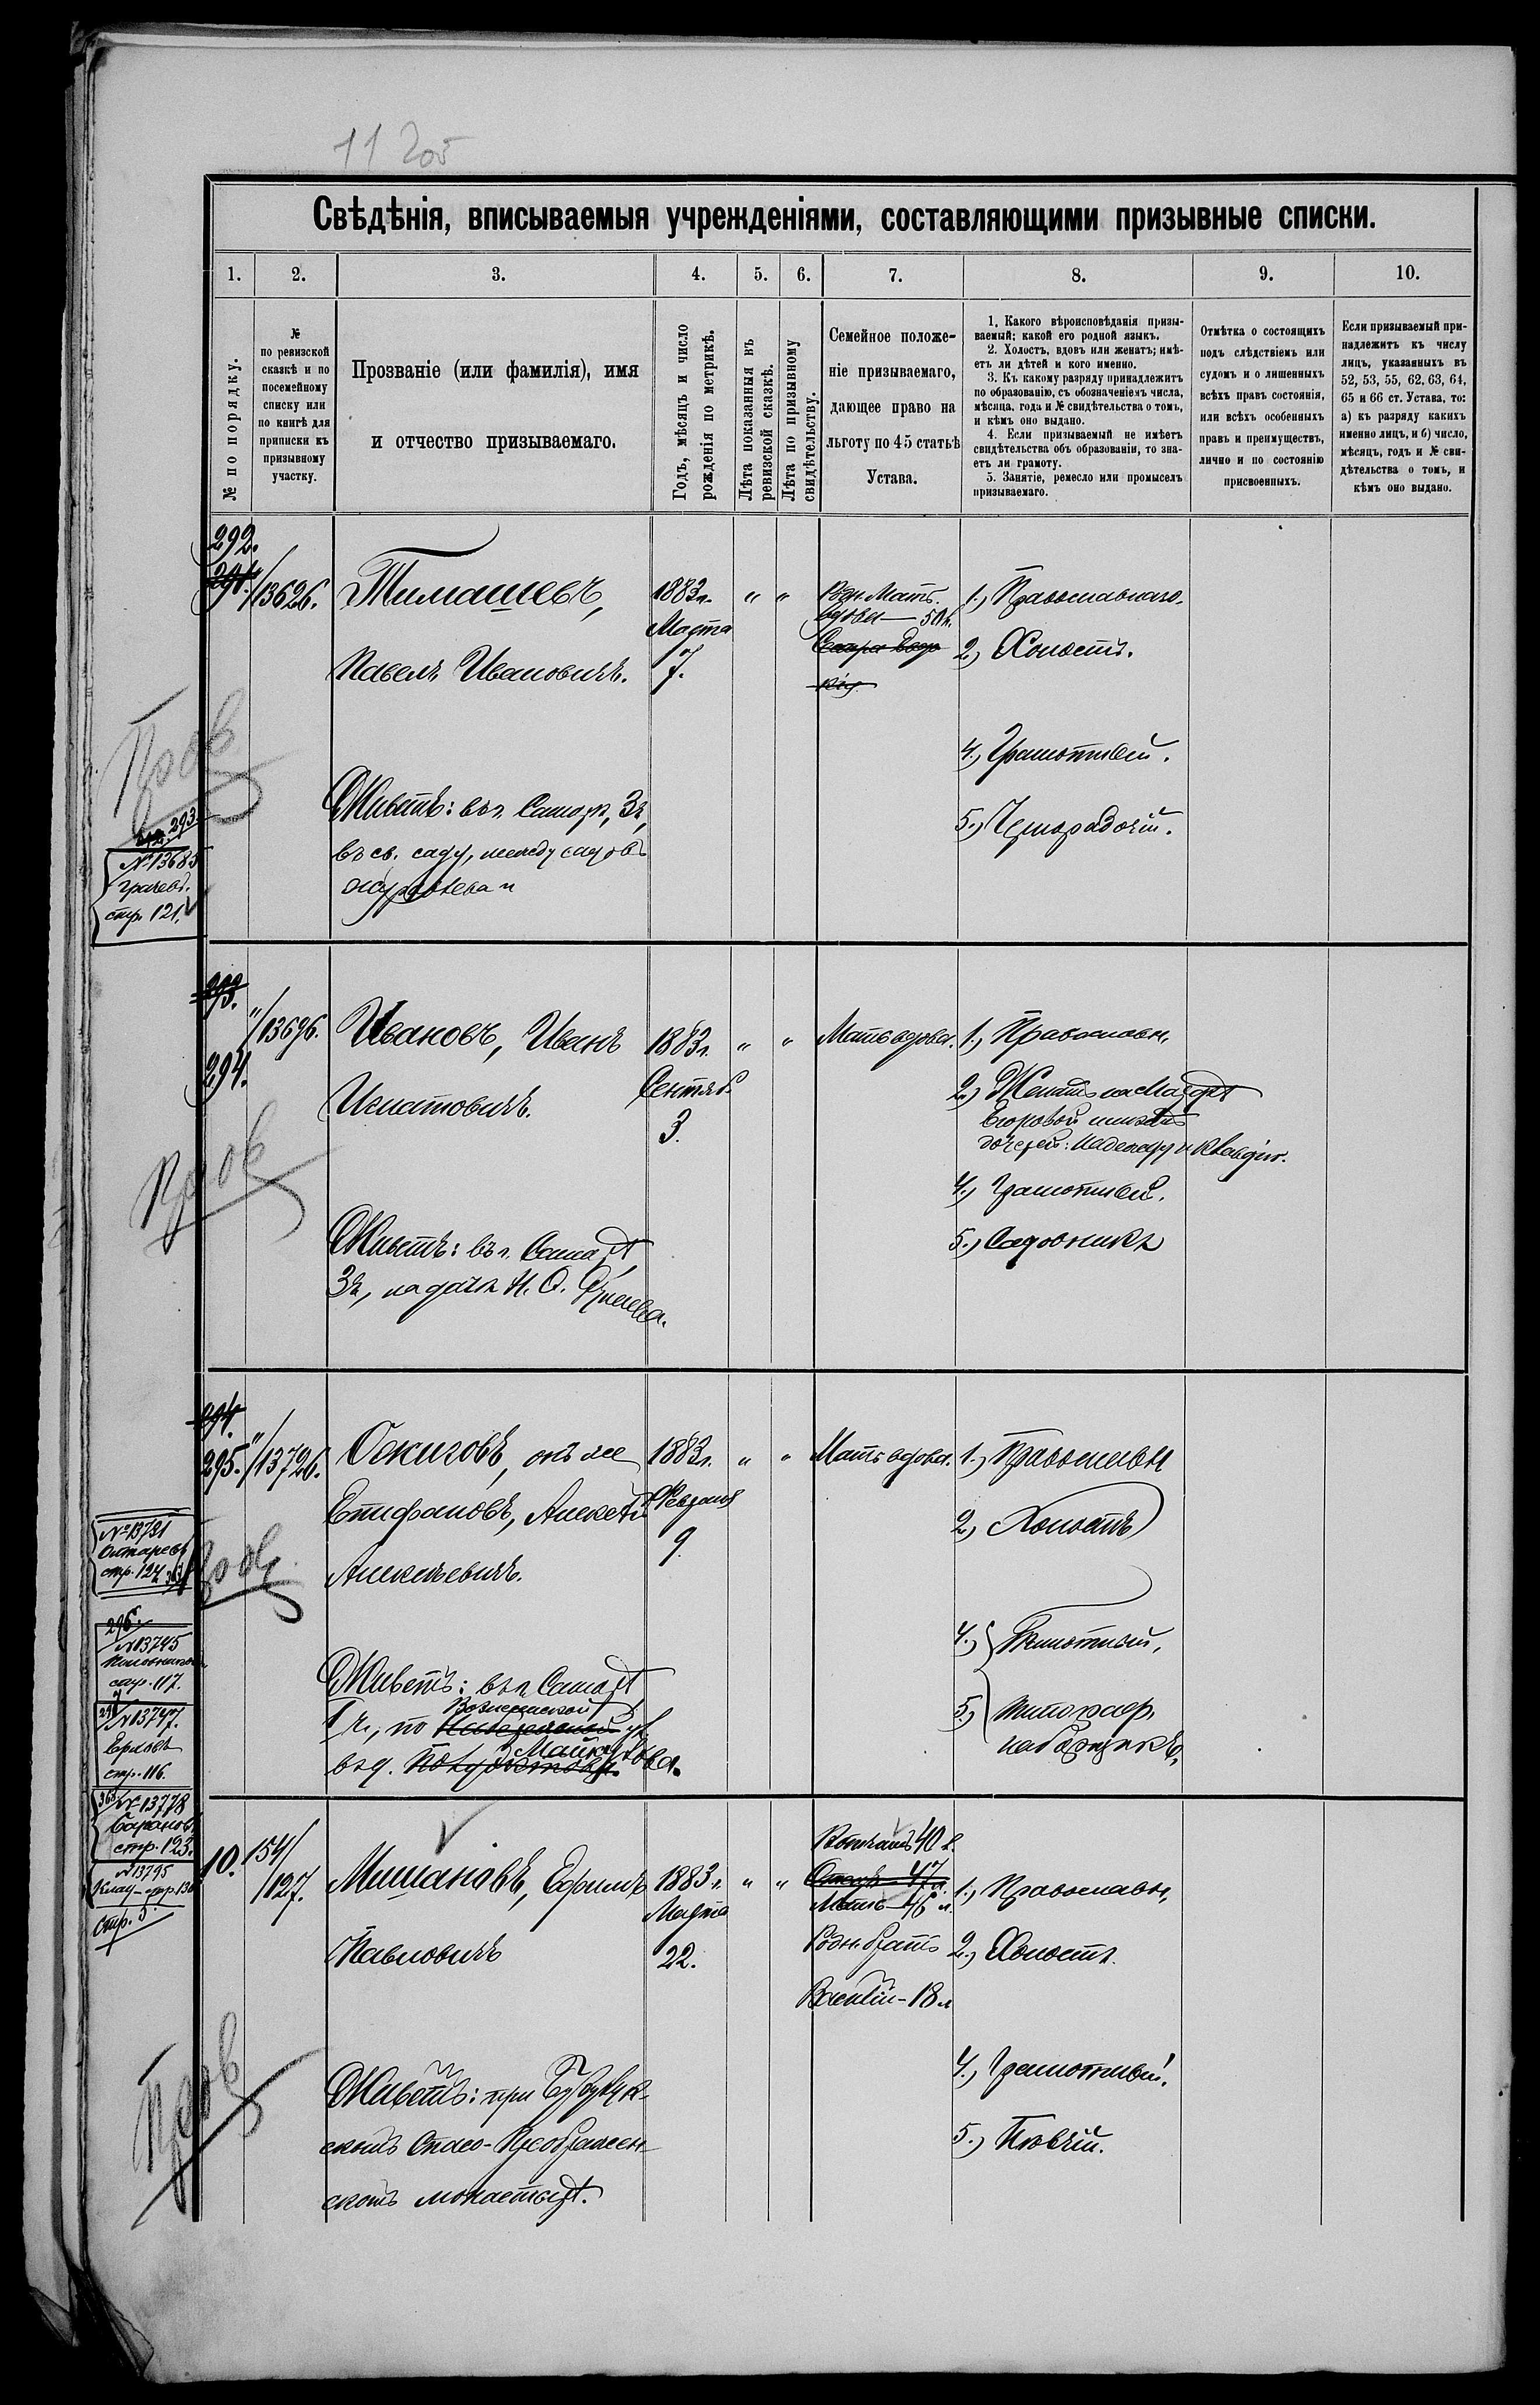 11 205
Свѣдѣнія, вписываемыя учрежденіями, составляющими призывные списки.
1. 2. 3. 4. 5. 6. 7. 8. 9. 10.
№ по порядку.
№
по ревизской
сказкѣ и по
посемейному
списку или
по книгѣ для
приписки къ
призывному
участку.
Прозваніе (или фамилія), имя
и отчество призываемаго.
Годъ, мѣсяцъ и число
рожденія по метрикѣ.
Лѣта показанныя въ
ревизской сказкѣ.
Лѣта по призывному
свидѣтельству.
Семейное положе-
ніе призываемаго,
дающее право на
льготу по 45 статьѣ
Устава.
1. Какого вѣроисповѣданія призы-
ваемый; какой его родной языкъ.
2. Холостъ, вдовъ или женатъ; имѣ-
етъ ли дѣтей и кого именно.
3. Къ какому разряду принадлежитъ
по образованію, съ обозначеніемъ числа,
мѣсяца, года и № свидѣтельства о томъ,
и кѣмъ оно выдано.
4. Если призываемый не имѣетъ
свидѣтельства объ образованіи, то зна-
етъ ли грамоту.
5. Занятіе, ремесло или промыселъ
призываемаго.
Отмѣтка о состоящихъ
подъ слѣдствіемъ или
судомъ и о лишенныхъ
всѣхъ правъ состоянія,
или всѣхъ особенныхъ
правъ и преимуществъ,
лично и по состоянію
присвоенныхъ.
Если призываемый при-
надлежитъ къ числу
лицъ, указанныхъ въ
52, 53, 55, 62, 63, 64,
65 и 66 ст. Устава, то:
а) къ разряду какихъ
именно лицъ, и б) число,
мѣсяцъ, годъ и № сви-
дѣтельства о томъ, и
кѣмъ оно выдано.
292.
/13626. Тимашевъ, 1883 г. " " Родн. Мать. 1.) Православнаго.
Марта вдова — 50 л.
Павелъ Ивановичъ. 7. 2.) Холостъ.
4.) Грамотный.
Живетъ: въ г. Самарѣ, 3 ч,
въ св. саду, между садовъ
5.) Чернорабочій.
293.
№ 13683
стр. 121.
293.
"/13696. Ивановъ, Иванъ 1883 г. " " Мать вдова. 1.) Православн.
294. Игнатовичъ. Сентяб. 3.
2.) Женатъ на
дочерей: Надежду и Клавдію.
4.) Грамотный.
5.) Садовникъ
Живетъ: въ г. Самарѣ
3 ч, на дачѣ Н. Ѳ.
294.
295. "/13726. онъ же 1883 г. " " Мать вдова. 1.) Православн
Епифановъ, Алексѣй Февраля
Алексѣевичъ. 9.
2.) Холостъ
4.) Грамотный,
5.) типограф.
наборщикъ,
Живетъ: въ г. Самарѣ
1 ч., по Вознесенской ул.
в. д.
№ 13731
стр. 124
296.
№ 13745
стр. 117.
№ 13747.
стр. 116.
№ 13778
Барановъ
стр. 123.
№ 13795
Стр. 5.
10. 154/
/127. Мишановъ, Ефимъ 1883 г. " " Вотчимъ 40 л.
Отецъ — 47 л.
Мать — 46 л. 1.) Православн.
Марта
Павловичъ 22. Родн. братъ 2.) Холостъ.
Василій — 18 л
4.) Грамотный.
5.) Пѣвчій.
Живетъ: при Бузулук-
скомъ Спасо-Преображен-
скомъ монастырѣ.